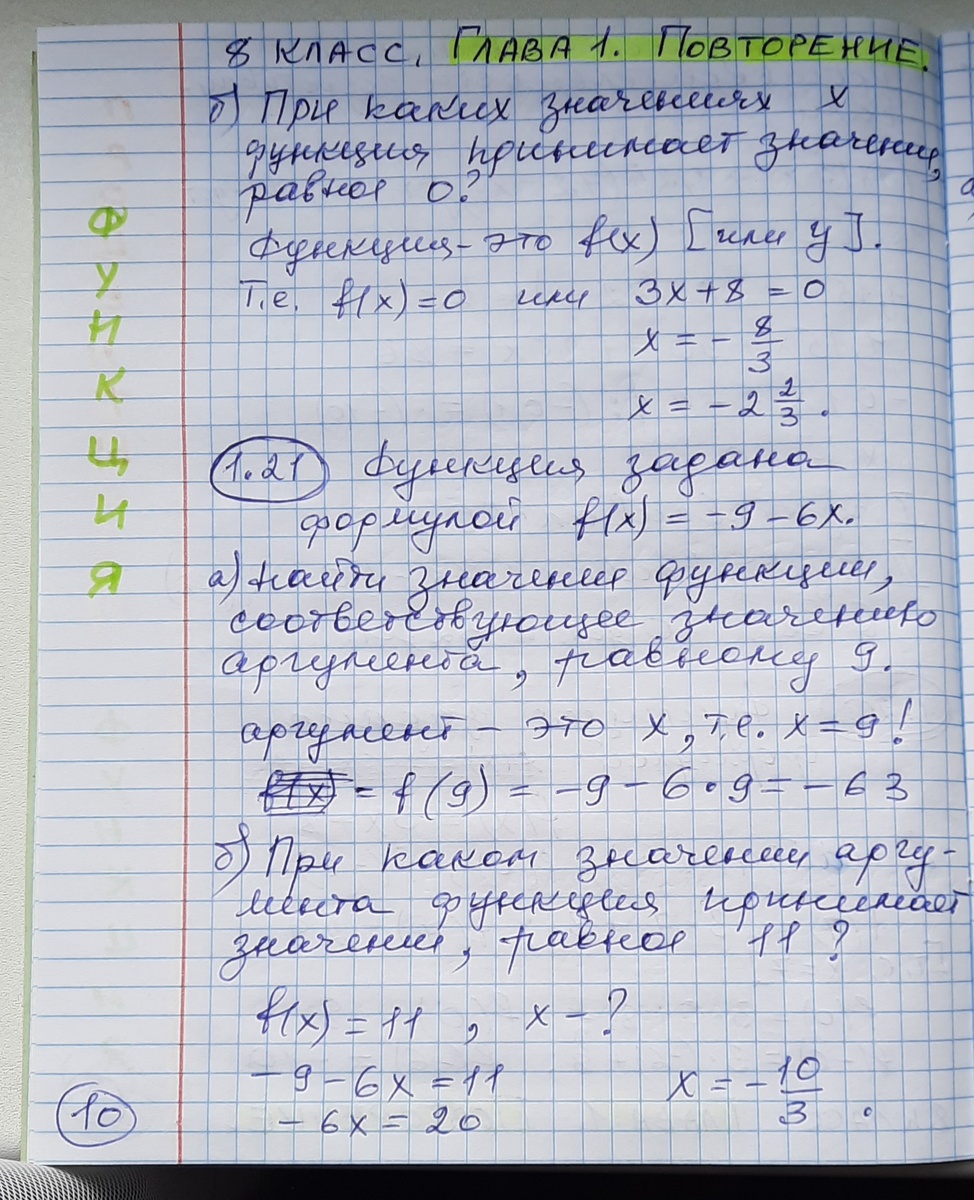 8 КЛАСС. ГЛАВА 1. ПОВТОРЕНИЕ.
б) При каких значениях х
функция принимает значение,
равное 0?
Функция - это f(x) [или y].
Т.е. f(x) = 0 или 3x + 8 = 0
x = - 8/3
x = - 2 2/3.
1.21 Функция задана
формулой f(x) = -9 - 6x.
а) Найти значение функции,
соответствующее значению
аргумента, равному 9.
аргумент - это x, т.е. x = 9!
f(x) = f(9) = -9 - 6 · 9 = -63
б) При каком значении аргу-
мента функция принимает
значение, равное 11?
f(x) = 11, x - ?
-9 - 6x = 11 x = - 10/3.
-6x = 20
10
ФУНКЦИЯ